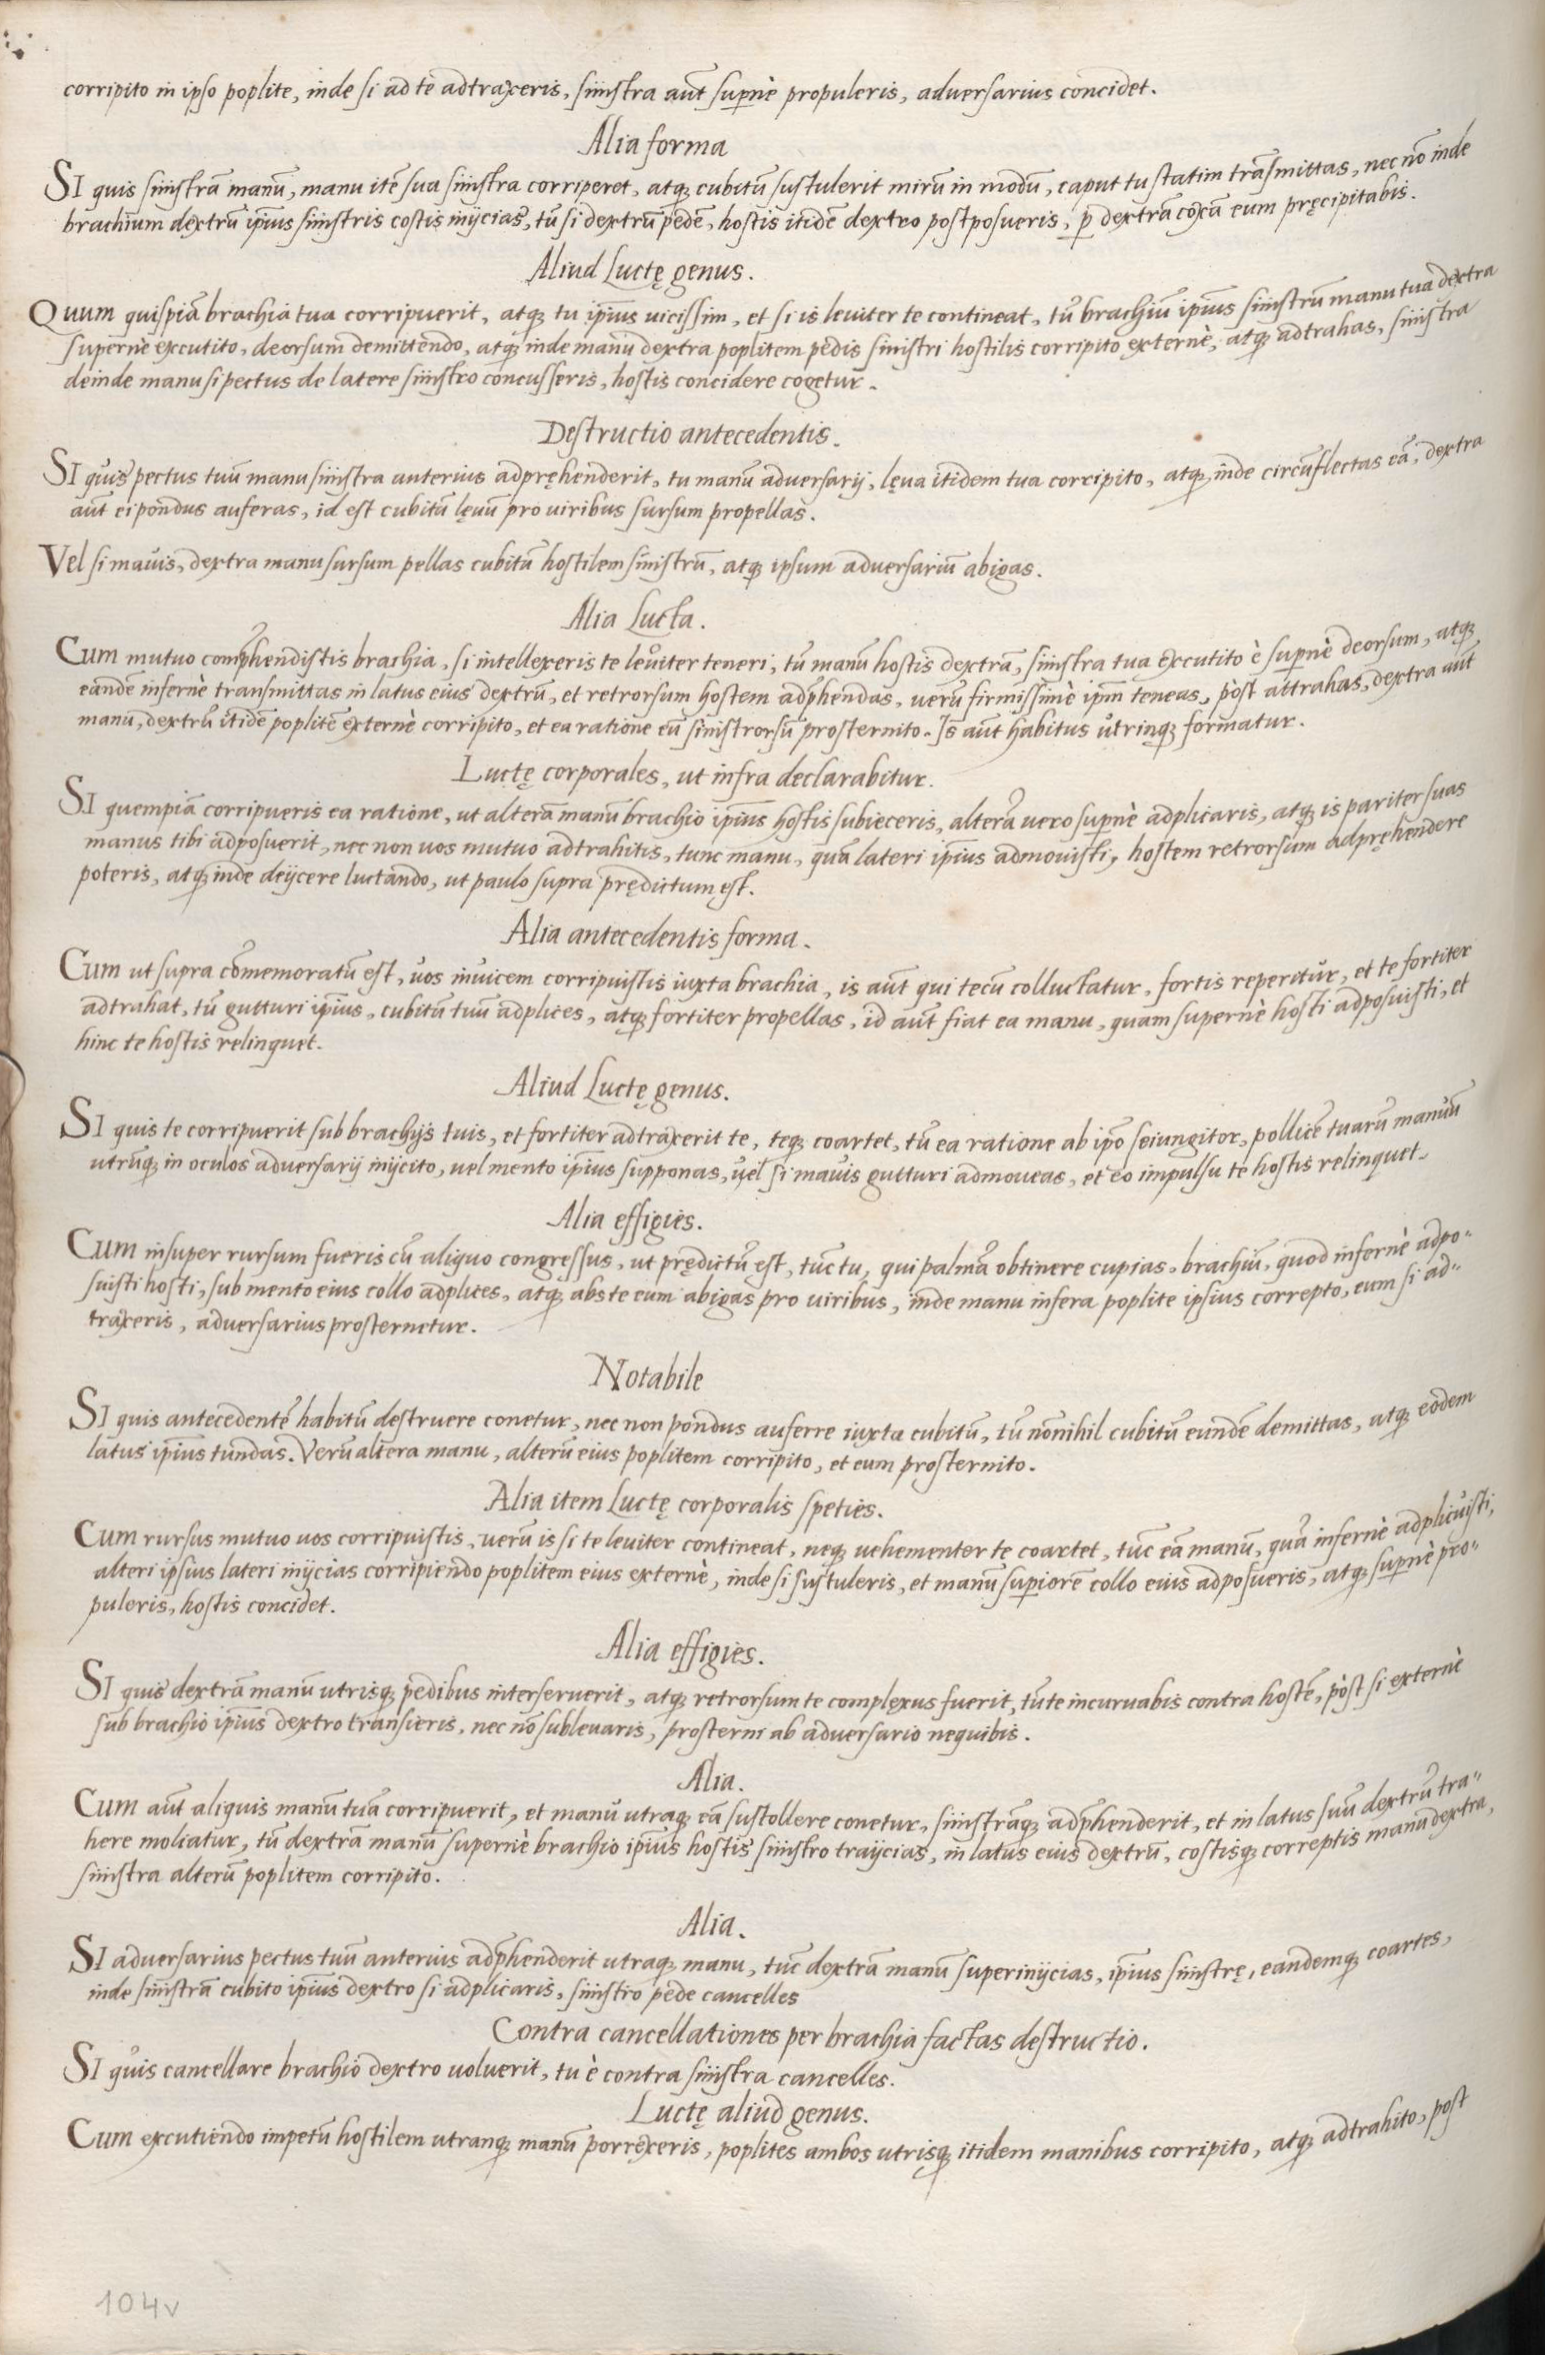 corripito in ipso poplite, inde si ad te adtraxeris, sinistra aūt supernè propuleris, adversarius concidet.
Alia forma
SI quis sinistrā manū, manu itē sua sinistra corriperet, atq; cubitū sustulerit mirū in modū, caput tu statim trāsmittas, nec nō inde
brachium dextrū ipsius sinistris costis inijcias, tū si dextrū pedē, hostis itidē dextro postposueris, p dextrā coxā eum pręcipitabis.
Aliud Luctę genus.
Quum quispiā brachia tua corripuerit, atq; tu ipsius vicissim, et si is leviter te contineat, tū brachiū ipsius sinistrū manu tua dextra
supernè excutito, deorsum demittendo, atq; inde manu dextra poplitem pedis sinistri hostilis corripito externè, atq; adtrahas, sinistra
deinde manu si pectus de latere sinistro concusseris, hostis concidere cogetur.
Destructio antecedentis.
SI quis pectus tuū manu sinistra anterius adpręhenderit, tu manū adversarij, lęva itidem tua corripito, atq; inde circūflectas eā, dextra
aūt ei pondus auferas, id est cubitū lęvū pro viribus sursum propellas.
Vel si mavis, dextra manu sursum pellas cubitū hostilem sinistrū, atq; ipsum adversariū abigas.
Alia Lucta.
Cum mutuo comphendistis brachia, si intellexeris te leviter teneri, tū manū hostis dextrā, sinistra tua excutito è supernè deorsum, atq;
eandē infernè transmittas in latus eius dextrū, et retrorsum hostem adphendas, verū firmissimè ipm teneas, pòst attrahas, dextra aūt
manu, dextrū itidē poplitē externè corripito, et ea ratione eū sinistrorsū prosternito. Is aūt habitus utrinq; formatur.
Luctę corporales, ut infra declarabitur.
SI quempiā corripueris ea ratione, ut alterā manū brachio ipsius hostis subieceris, alterā vero supernè adplicaris, atq; is pariter suas
manus tibi adposuerit, nec non vos mutuo adtrahitis, tunc manu, quā lateri ipsius admovisti, hostem retrorsum adpręhendere
poteris, atq; inde deijcere luctando, ut paulo supra prędictum est.
Alia antecedentis forma.
Cum ut supra cōmemoratū est, vos invicem corripuistis iuxta brachia, is aūt qui tecū colluctatur, fortis reperitur, et te fortiter
adtrahat, tū gutturi ipsius, cubitū tuū adplices, atq; fortiter propellas, id aūt fiat ea manu, quam supernè hosti adposuisti, et
hinc te hostis relinquet.
Aliud Luctę genus.
SI quis te corripuerit sub brachijs tuis, et fortiter adtraxerit te, teq; coartet, tū ea ratione ab ipso seiungitor, pollicē tuarū manuū
utrūq; in oculos adversarij inijcito, vel mento ipsius supponas, vel si mavis gutturi admoveas, et eo impulsu te hostis relinquet.
Alia effigies.
Cum insuper rursum fueris cū aliquo congressus, ut prędictū est, tūc tu, qui palmā obtinere cupias, brachiū, quod infernè adpo-
suisti hosti, sub mento eius collo adplices, atq; abs te eum abigas pro viribus, inde manu infera poplite ipsius correpto, eum si ad-
traxeris, adversarius prosternetur.
Notabile
SI quis antecedentē habitū destruere conetur, nec non pondus auferre iuxta cubitū, tū nōnihil cubitū eundē demittas, atq; eodem
latus ipsius tundas. Verū altera manu, alterū eius poplitem corripito, et eum prosternito.
Alia item Luctę corporalis speties.
Cum rursus mutuo vos corripuistis, verū is si te leviter contineat, neq; vehementer te coartet, tūc eā manū, quā infernè adplicuisti,
alteri ipsius lateri inijcias corripiendo poplitem eius externè, inde si sustuleris, et manū superiorē collo eius adposueris, atq; supernè pro-
puleris, hostis concidet.
Alia effigies.
SI quis dextrā manū utrisq; pedibus interseruerit, atq; retrorsum te complexus fuerit, tū te incurvabis contra hostē, pòst si externè
sub brachio ipsius dextro transieris, nec nō sublevaris, prosterni ab adversario nequibis.
Alia.
Cum aūt aliquis manū tuā corripuerit, et manu utraq; eā sustollere conetur, sinistrāq; adphenderit, et in latus suū dextrū tra-
here moliatur, tū dextrā manū supernè brachio ipsius hostis sinistro traijcias, in latus eius dextrū, costisq; correptis manu dextra,
sinistra alterū poplitem corripito.
Alia.
SI adversarius pectus tuū anterius adphenderit utraq; manu, tūc dextrā manū superinijcias, ipsius sinistrę, eandemq; coartes,
inde sinistrā cubito ipsius dextro si adplicaris, sinistro pede cancelles
Contra cancellationes per brachia factas destructio.
SI quis cancellare brachio dextro voluerit, tu è contra sinistra cancelles.
Luctę aliud genus.
Cum excutiendo impetū hostilem utranq; manū porrexeris, poplites ambos utrisq; itidem manibus corripito, atq; adtrahito, post
104v